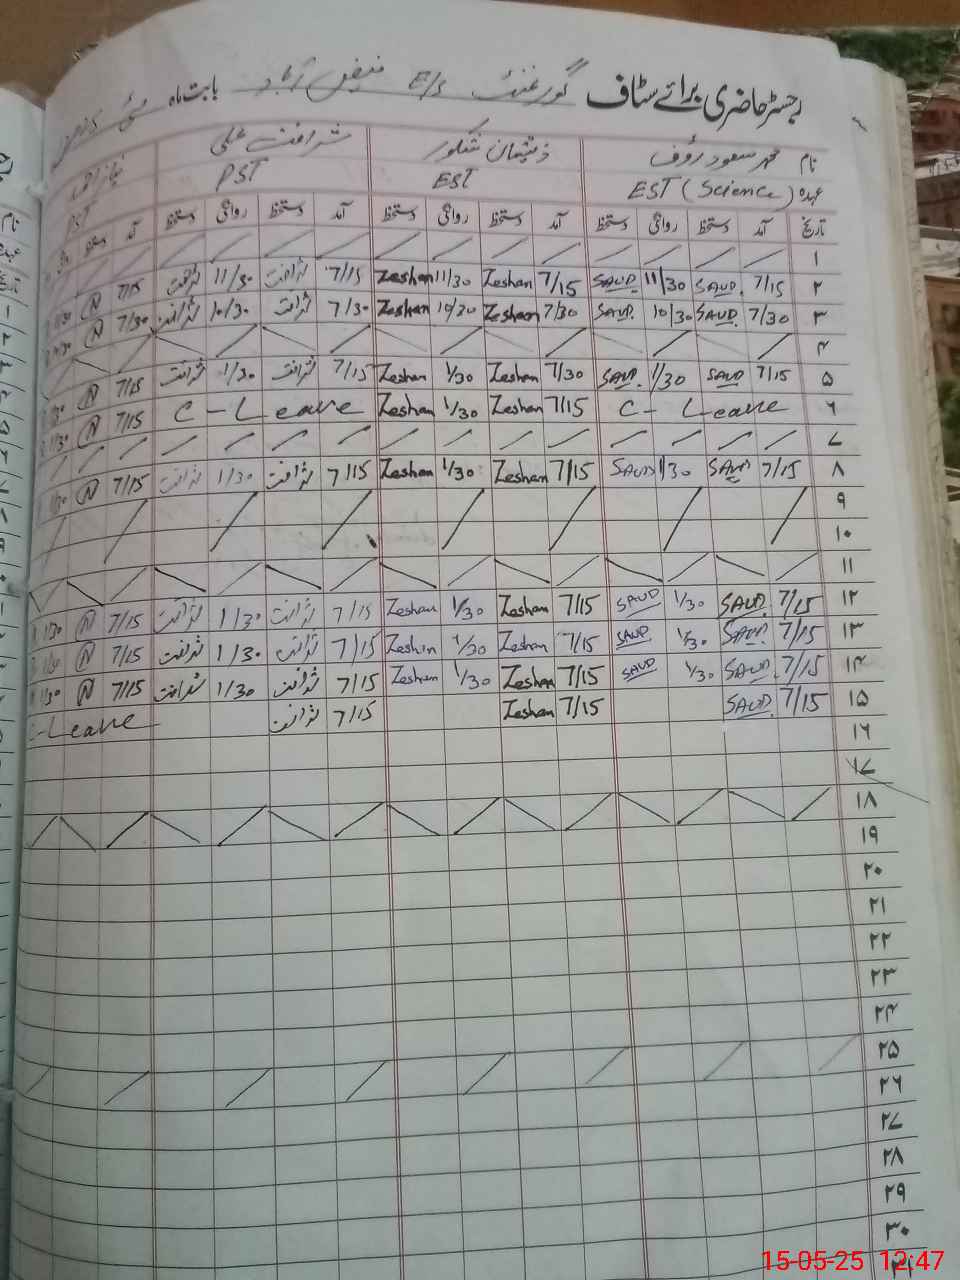 رجسٹر حاضری برائے سٹاف گورنمنٹ E/S فیض آباد بابت ماہ مئی
نام محمد سعود رؤف ذیشان شکور شرافت علی
عہدہ EST (Science) EST PST PST
تاریخ آمد دستخط روانگی دستخط آمد دستخط روانگی دستخط آمد دستخط روانگی دستخط آمد
۱
۲ 7/15 SAUD. 11/30 SAUD. 7/15 Zeshan 11/30 Zeshan 7/15 شرافت 11/30 شرافت 7/15
۳ 7/30 SAUD. 10/30 SAUD. 7/30 Zeshan 10/30 Zeshan 7/30 شرافت 10/30 شرافت 7/30
۴
۵ 7/15 SAUD 1/30 SAUD. 7/30 Zeshan 1/30 Zeshan 7/15 شرافت 1/30 شرافت 7/15
۶ C- Leave 7/15 Zeshan 1/30 Zeshan C- Leave 7/15
۷
۸ 7/15 SAUD 1/30 SAUD 7/15 Zeshan 1/30 Zeshan 7/15 شرافت 1/30 شرافت 7/15
۹
۱۰
۱۱
۱۲ 7/15 SAUD. 1/30 SAUD 7/15 Zeshan 1/30 Zeshan 7/15 شرافت 1/30 شرافت 7/15
۱۳ 7/15 SAUD. 1/30 SAUD. 7/15 Zeshan 1/30 Zeshan 7/15 شرافت 1/30 شرافت 7/15
۱۴ 7/15 SAUD. 1/30 SAUD 7/15 Zeshan 1/30 Zeshan 7/15 شرافت 1/30 شرافت 7/15
۱۵ 7/15 SAUD. 7/15 Zeshan 7/15 شرافت C-Leave
۱۶
۱۷
۱۸
۱۹
۲۰
۲۱
۲۲
۲۳
۲۴
۲۵
۲۶
۲۷
۲۸
۲۹
۳۰
۳۱
15-05-25 12:47